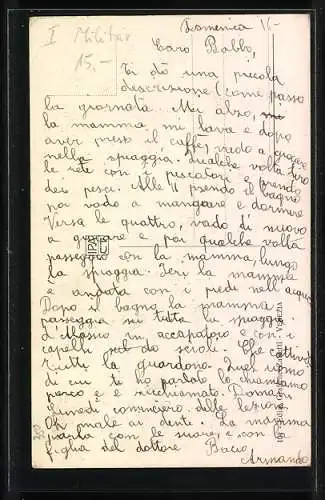 I Militär
15.-
Domenica 16-
Caro Babbo,
Ti dò una piccola
descrizione (come passo
la giornata. Mi alzo,
la mamma mi lava e dopo
aver preso il caffè, vado a giocare
nella spiaggia. Qualche volta tiro
le reti con i pescatori e prendo
dei pesci. Alle 11 prendo il bagno
poi vado a mangiare e dormire
Verso le quattro, vado di nuovo
a giocare e poi qualche volta
passeggio con la mamma, lungo
la spiaggia. Ieri la mamma
è andata con i piedi nell'acqua
Dopo il bagno la mamma
passeggia su tutta la spiaggia
d'Alassio in accapatoio e con i
capelli sciolti. Che
Tutti la guardono. Quel uomo
di cui te ho parlato lo chiamano
porco e è Domani
lunedi comincierò delle lezione.
Ho male ai dente. La mamma
parla con le suore, e con
figlia del dottore Bacio
Armando